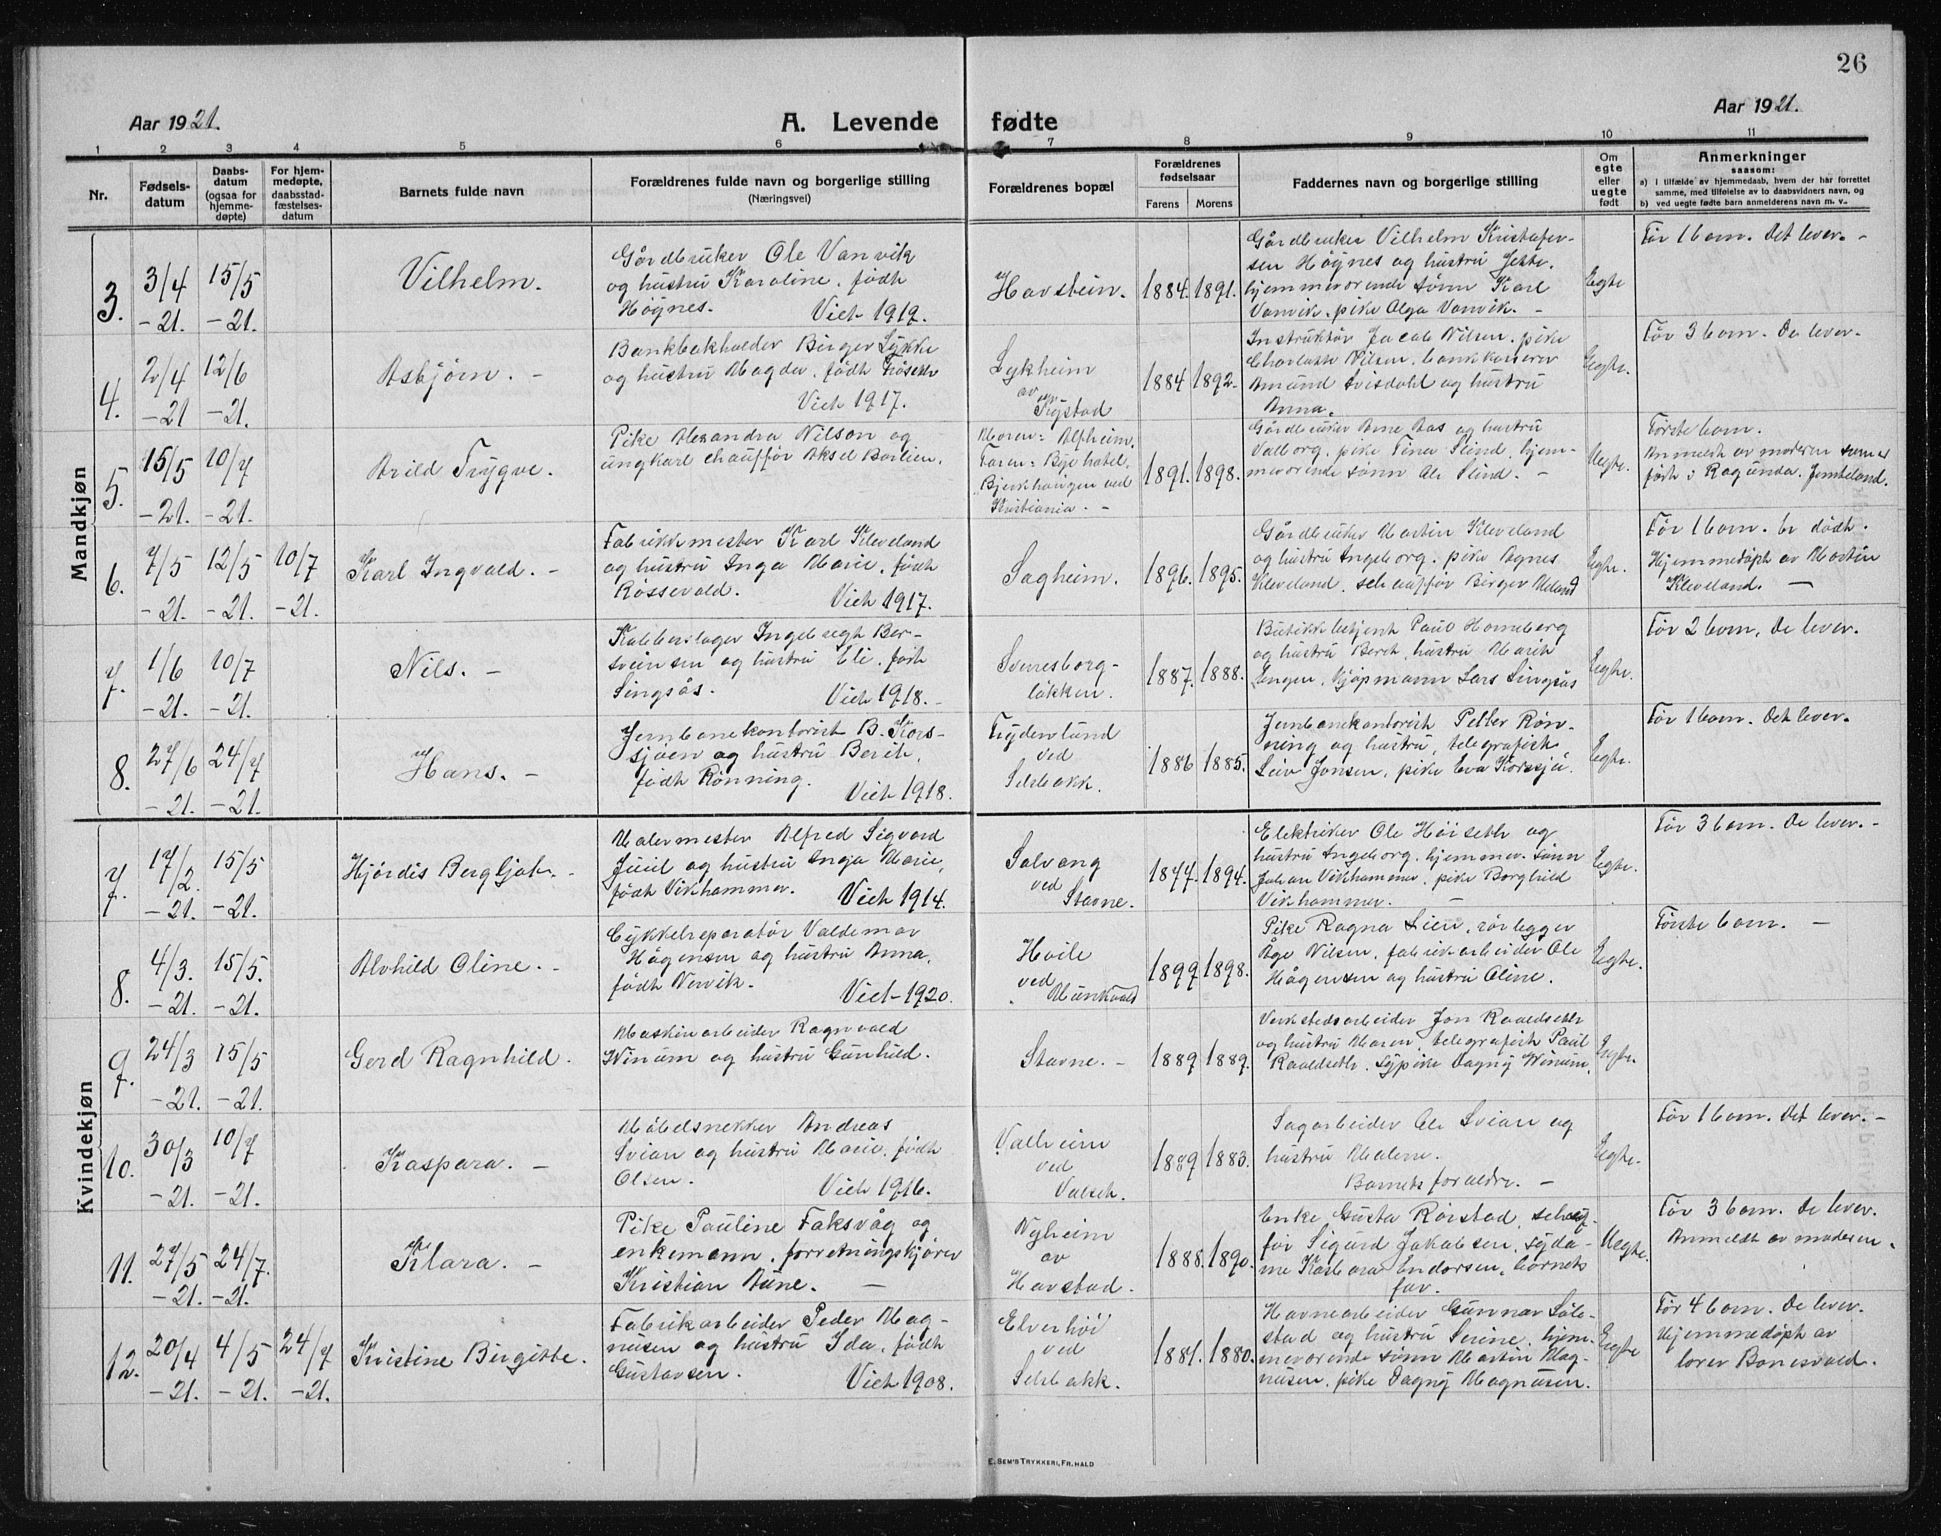 26
Aar 1921.
A. Levende fødte
Aar 1921.
1 2 3 4 5 6 7 8 9 10 11
Nr.
Fødsels-
datum
Daabs-
datum
(ogsaa for
hjemme-
døpte)
For hjem-
medøpte,
daabsstad-
fæstelses-
datum
Barnets fulde navn
Forældrenes fulde navn og borgerlige stilling
(Næringsvei)
Forældrenes bopæl
Forældrenes
fødselsaar
Farens Morens
Faddernes navn og borgerlige stilling
Om
egte
eller
uegte
født
Anmerkninger
saasom:
a) i tilfælde av hjemmedaab, hvem der har forrettet
samme, med tilføielse av to daabsvidners navn, og
b) ved uegte fødte barn anmelderens navn m. v.
Mandkjøn
3.
3/4
-21.
15/5
-21.
Vilhelm.
Gårdbruker Ole Vanvik
og hustru Karoline, født
Høgnes. Viet 1919.
Havstein.
1884. 1891.
Gårdbruker Vilhelm Kristofer-
sen Høgnes og hustru Jette,
hjemmeværende sønn Karl
Vanvik, pike Olga Vanvik. -
Egte
Før 1 barn. Det lever. -
4.
2/4
-21
12/6
-21.
Asbjørn. -
Bankbokholder Birger Lykke
og hustru Magda, født Frøseth
Viet 1917.
Lykheim
av
Sigstad
1884 1892.
Instruktør Jacob Nilsen, pike
Charlotte Nilsen, bankkasserer
Amund Svisdahl og hustru
Anna.
Egte.
Før 3 barn. De lever.
5.
15/5
-21.
10/7
-21.
Arild Trygve.
Pike Alexandra Nilson og
ungkarl chauffør Aksel Borlien.
Moren: Alfheim.
Faren: Bye hotel,
Bjerkhaugen ved
Kristiania. -
1891. 1898.
Gårdbruker Arne Aas og hustru
Valborg, pike Tina Slind, hjem-
meværende sønn Ole Slind. -
Uegte.
Første barn.
Anmeldt av moderen som er
født i Ragunda, Jemteland.
6.
7/5
-21.
12/5
-21.
10/7
-21.
Karl Ingvald. -
Fabrikkmester Karl Kleveland
og hustru Inga Marie, født
Røssevold. Viet 1917.
Sagheim.
1896. 1895.
Gårdbruker Martin Kleveland
og hustru Ingeborg, pike Agnes
Kleveland, schauffør Birger Meland
Egte.
Før 1 barn. Er dødt.
Hjemmedøpt av Martin
Kleveland. -
7.
1/6
-21.
10/7
-21.
Nils. -
Kobberslager Ingebregt Ber-
sveinsen og hustru Eli, født
Singsås. Viet 1918.
Sverresborg-
løkken.
1887. 1888.
Butikkbetjent Paul Homberg
og hustru Berit, hustru Marit
Engen, kjøpmann Lars Singsås
Egte.
Før 2 barn. De lever.
8.
27/6
-21.
24/7
-21.
Hans. -
Jernbanekontorist B. Kors-
sjøen og hustru Berit,
født Rønning. Viet 1918.
Frydenlund
ved
Selsbakk.
1886 1885.
Jernbanekontorist Petter Røn-
ning og hustru, telegrafist
Leiv Jonsen, pike Eva Korssjø.
Egte.
Før 1 barn. Det lever.
Kvindekjøn
7.
17/2.
-21.
15/5
-21.
Hjørdis Bergljot. -
Malermester Alfred Sigvard
Juul og hustru Inga Marie,
født Vikhammer. Viet 1914.
Solvang
ved
Stavne.
1877. 1894.
Elektriker Ole Høiseth og
hustru Ingeborg, hjemmev. sønn
Johan Vikhammer, pike Borghild
Vikhammer. -
Egte.
Før 3 barn. De lever. -
8.
4/3.
-21.
15/5.
-21.
Alvhild Oline. -
Cykkelreparatør Valdemar
Hågensen og hustru Anna,
født Nervik. Viet 1920.
Hvile
ved
Munkvold
1899. 1898.
Pike Ragna Lien, rørlegger
Åge Nilsen, fabrikarbeider Ole
Hågensen og hustru Oline.
Egte.
Første barn. -
9.
24/3
-21.
15/5
-21.
Gerd Ragnhild.
Maskinarbeider Ragnvald
Winum og hustru Gunhild.
Stavne. -
1889 1889.
Verkstedsarbeider Jon Raaldseth
og hustru Maren, telegrafist Paul
Raaldseth, sypike Dagny Winum.
Egte.
10.
30/3
-21.
10/7
-21.
Kaspara. -
Møbelsnekker Andreas
Svian og hustru Marie, født
Olsen. Viet 1916.
Valheim
ved
Valset.
1889 1883.
Sagarbeider Ole Svian og
hustru Malene.
Barnets foraldre. -
Egte.
Før 1 barn. Det lever. -
11.
27/5
-21.
24/7.
-21.
Klara. -
Pike Pauline Faksvåg og
enkemann, forretningskjører
Kristian Aune. -
Nyheim
av
Havstad.
1888. 1890.
Enke Gusta Rørstad, schauf-
før Sigurd Jakobsen, syda-
me Karbara Endorsen, barnets
far.
Uegte.
Før 3 barn. De lever.
Anmeldt av moderen.
12.
20/4
-21.
4/5
-21.
24/7
-21.
Kristine Birgitte.
Fabrikarbeider Peder Mag-
nusen og hustru Ida, født
Gustavsen. Viet 1908.
Elverhøi
ved
Selsbakk.
1881. 1880.
Havnearbeider Gunnar Sole-
stad og hustru Serine, hjem-
meværende sønn Martin Mag-
nusen, pike Dagny Magnusen.
Egte
Før 4 barn. De lever.
Hjemmedøpt av
lærer Bonesvold.
E. SEM'S TRYKKERI, FR.HALD